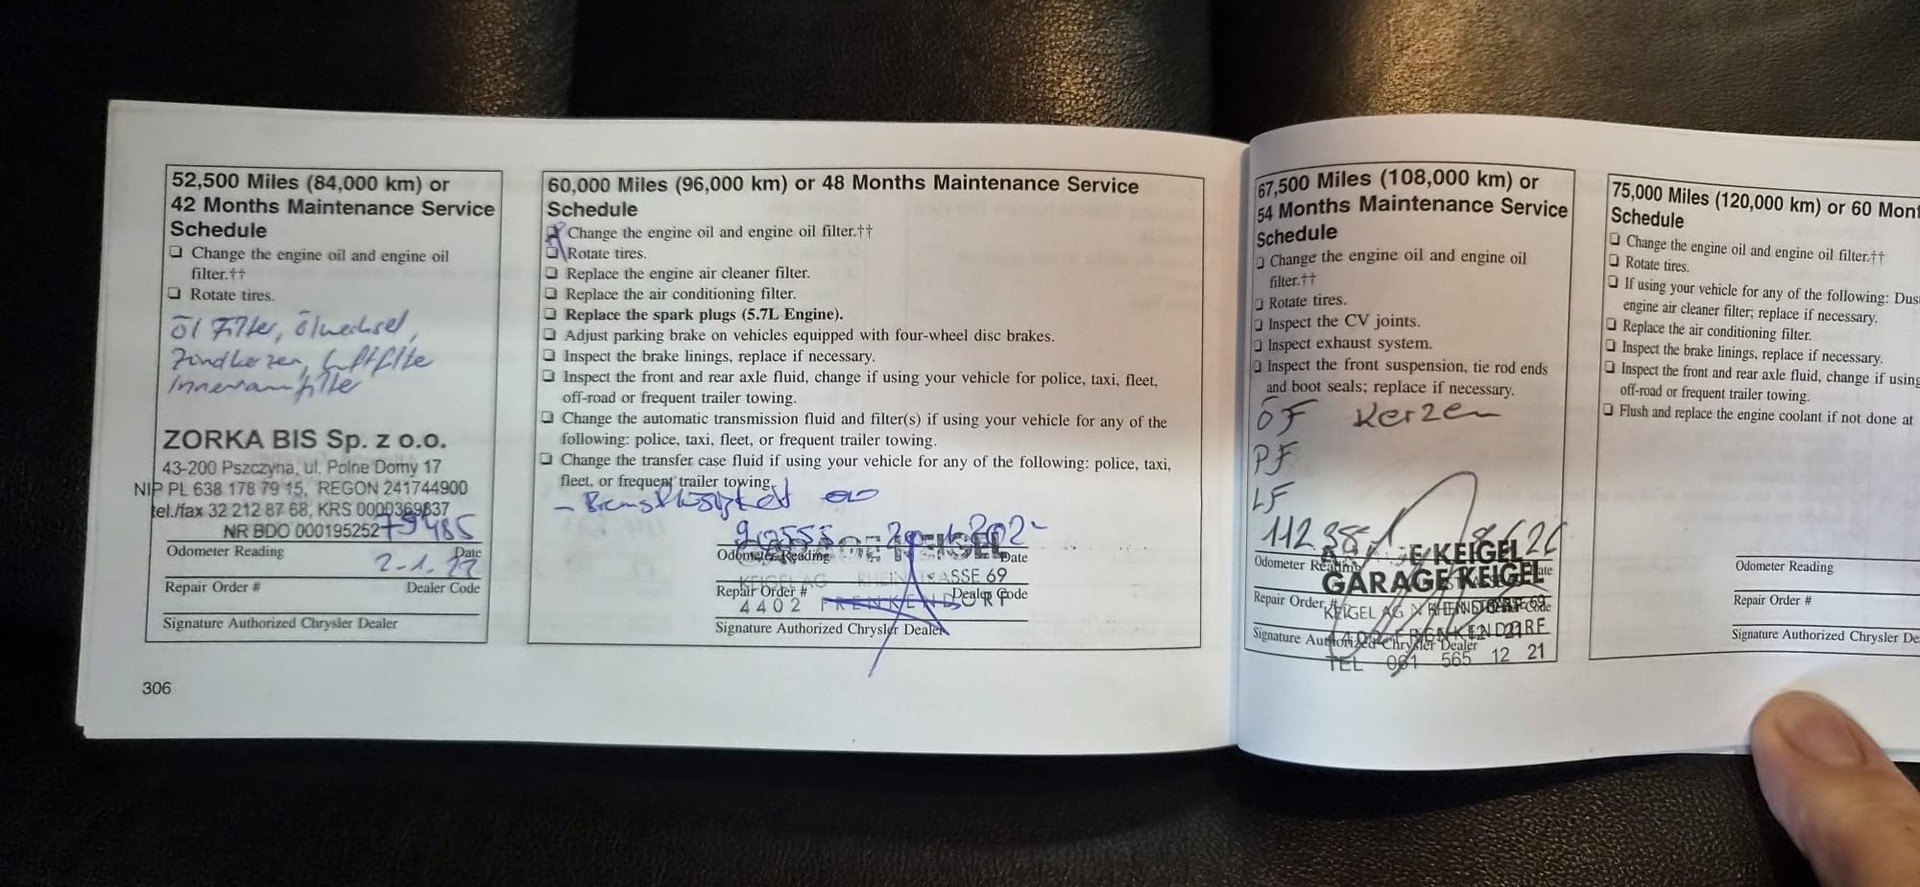 52,500 Miles (84,000 km) or
42 Months Maintenance Service
Schedule
❏ Change the engine oil and engine oil
filter.††
❏ Rotate tires.
Öl Filter, Ölwechsel,
Zündkerzen, Luftfilte
Innenraumfilter
ZORKA BIS Sp. z o.o.
43-200 Pszczyna, ul. Polne Domy 17
NIP PL 638 178 79 15, REGON 241744900
tel./fax 32 212 87 68, KRS 0000369837
NR BDO 000195252
79485
Odometer Reading Date
2-1.22
Repair Order # Dealer Code
Signature Authorized Chrysler Dealer
306
60,000 Miles (96,000 km) or 48 Months Maintenance Service
Schedule
❏ Change the engine oil and engine oil filter.††
❏ Rotate tires.
❏ Replace the engine air cleaner filter.
❏ Replace the air conditioning filter.
❏ Replace the spark plugs (5.7L Engine).
❏ Adjust parking brake on vehicles equipped with four-wheel disc brakes.
❏ Inspect the brake linings, replace if necessary.
❏ Inspect the front and rear axle fluid, change if using your vehicle for police, taxi, fleet,
off-road or frequent trailer towing.
❏ Change the automatic transmission fluid and filter(s) if using your vehicle for any of the
following: police, taxi, fleet, or frequent trailer towing.
❏ Change the transfer case fluid if using your vehicle for any of the following: police, taxi,
fleet, or frequent trailer towing.
Odometer Reading Date
KEIGEL AG RHEINSTRASSE 69
Repair Order # Dealer Code
4402 FRENKENDORF
Signature Authorized Chrysler Dealer
67,500 Miles (108,000 km) or
54 Months Maintenance Service
Schedule
❏ Change the engine oil and engine oil
filter.††
❏ Rotate tires.
❏ Inspect the CV joints.
❏ Inspect exhaust system.
❏ Inspect the front suspension, tie rod ends
and boot seals; replace if necessary.
ÖF Kerzen
PF
LF
E KEIGEL
Odometer Reading Date
GARAGE KEIGEL
Repair Order # Code
KEIGEL AG RHEINSTRASSE 69
4402 FRENKENDORF
Signature Authorized Chrysler Dealer
TEL 061 565 12 21
75,000 Miles (120,000 km) or 60 Mon
Schedule
❏ Change the engine oil and engine oil filter.††
❏ Rotate tires.
❏ If using your vehicle for any of the following: Dus
engine air cleaner filter; replace if necessary.
❏ Replace the air conditioning filter.
❏ Inspect the brake linings, replace if necessary.
❏ Inspect the front and rear axle fluid, change if using
off-road or frequent trailer towing.
❏ Flush and replace the engine coolant if not done at
Odometer Reading
Repair Order #
Signature Authorized Chrysler De